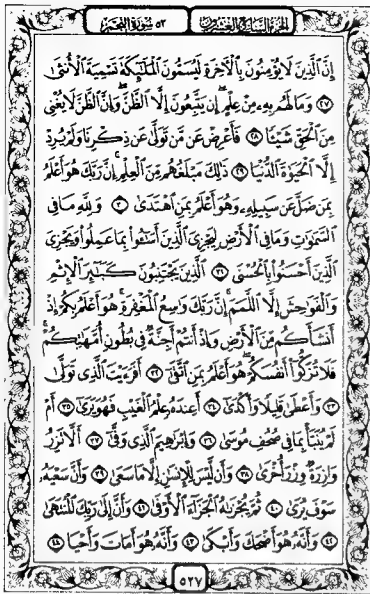 الجزء السابع والعشرون ٥٣ سورة النجم
إِنَّ الَّذِينَ لَا يُؤْمِنُونَ بِالْآخِرَةِ لَيُسَمُّونَ الْمَلَائِكَةَ تَسْمِيَةَ الْأُنثَىٰ
٢٧ وَمَا لَهُم بِهِ مِنْ عِلْمٍ إِن يَتَّبِعُونَ إِلَّا الظَّنَّ وَإِنَّ الظَّنَّ لَا يُغْنِي
مِنَ الْحَقِّ شَيْئًا ٢٨ فَأَعْرِضْ عَن مَّن تَوَلَّىٰ عَن ذِكْرِنَا وَلَمْ يُرِدْ
إِلَّا الْحَيَوٰةَ الدُّنْيَا ٢٩ ذَٰلِكَ مَبْلَغُهُم مِّنَ الْعِلْمِ إِنَّ رَبَّكَ هُوَ أَعْلَمُ
بِمَن ضَلَّ عَن سَبِيلِهِ وَهُوَ أَعْلَمُ بِمَنِ اهْتَدَىٰ ٣٠ وَلِلَّهِ مَا فِي
السَّمَٰوَٰتِ وَمَا فِي الْأَرْضِ لِيَجْزِيَ الَّذِينَ أَسَٰٓـُٔوا بِمَا عَمِلُوا وَيَجْزِيَ
الَّذِينَ أَحْسَنُوا بِالْحُسْنَى ٣١ الَّذِينَ يَجْتَنِبُونَ كَبَٰٓئِرَ الْإِثْمِ
وَالْفَوَٰحِشَ إِلَّا اللَّمَمَ إِنَّ رَبَّكَ وَٰسِعُ الْمَغْفِرَةِ هُوَ أَعْلَمُ بِكُمْ إِذْ
أَنشَأَكُم مِّنَ الْأَرْضِ وَإِذْ أَنتُمْ أَجِنَّةٌ فِي بُطُونِ أُمَّهَٰتِكُمْ
فَلَا تُزَكُّوا أَنفُسَكُمْ هُوَ أَعْلَمُ بِمَنِ اتَّقَىٰ ٣٢ أَفَرَءَيْتَ الَّذِي تَوَلَّىٰ
٣٣ وَأَعْطَىٰ قَلِيلًا وَأَكْدَىٰ ٣٤ أَعِندَهُ عِلْمُ الْغَيْبِ فَهُوَ يَرَىٰ ٣٥ أَمْ
لَمْ يُنَبَّأْ بِمَا فِي صُحُفِ مُوسَىٰ ٣٦ وَإِبْرَٰهِيمَ الَّذِي وَفَّىٰ ٣٧ أَلَّا تَزِرُ
وَازِرَةٌ وِزْرَ أُخْرَىٰ ٣٨ وَأَن لَّيْسَ لِلْإِنسَٰنِ إِلَّا مَا سَعَىٰ ٣٩ وَأَنَّ سَعْيَهُ
سَوْفَ يُرَىٰ ٤٠ ثُمَّ يُجْزَىٰهُ الْجَزَآءَ الْأَوْفَىٰ ٤١ وَأَنَّ إِلَىٰ رَبِّكَ الْمُنتَهَىٰ
٤٢ وَأَنَّهُ هُوَ أَضْحَكَ وَأَبْكَىٰ ٤٣ وَأَنَّهُ هُوَ أَمَاتَ وَأَحْيَا ٤٤
٥٢٧